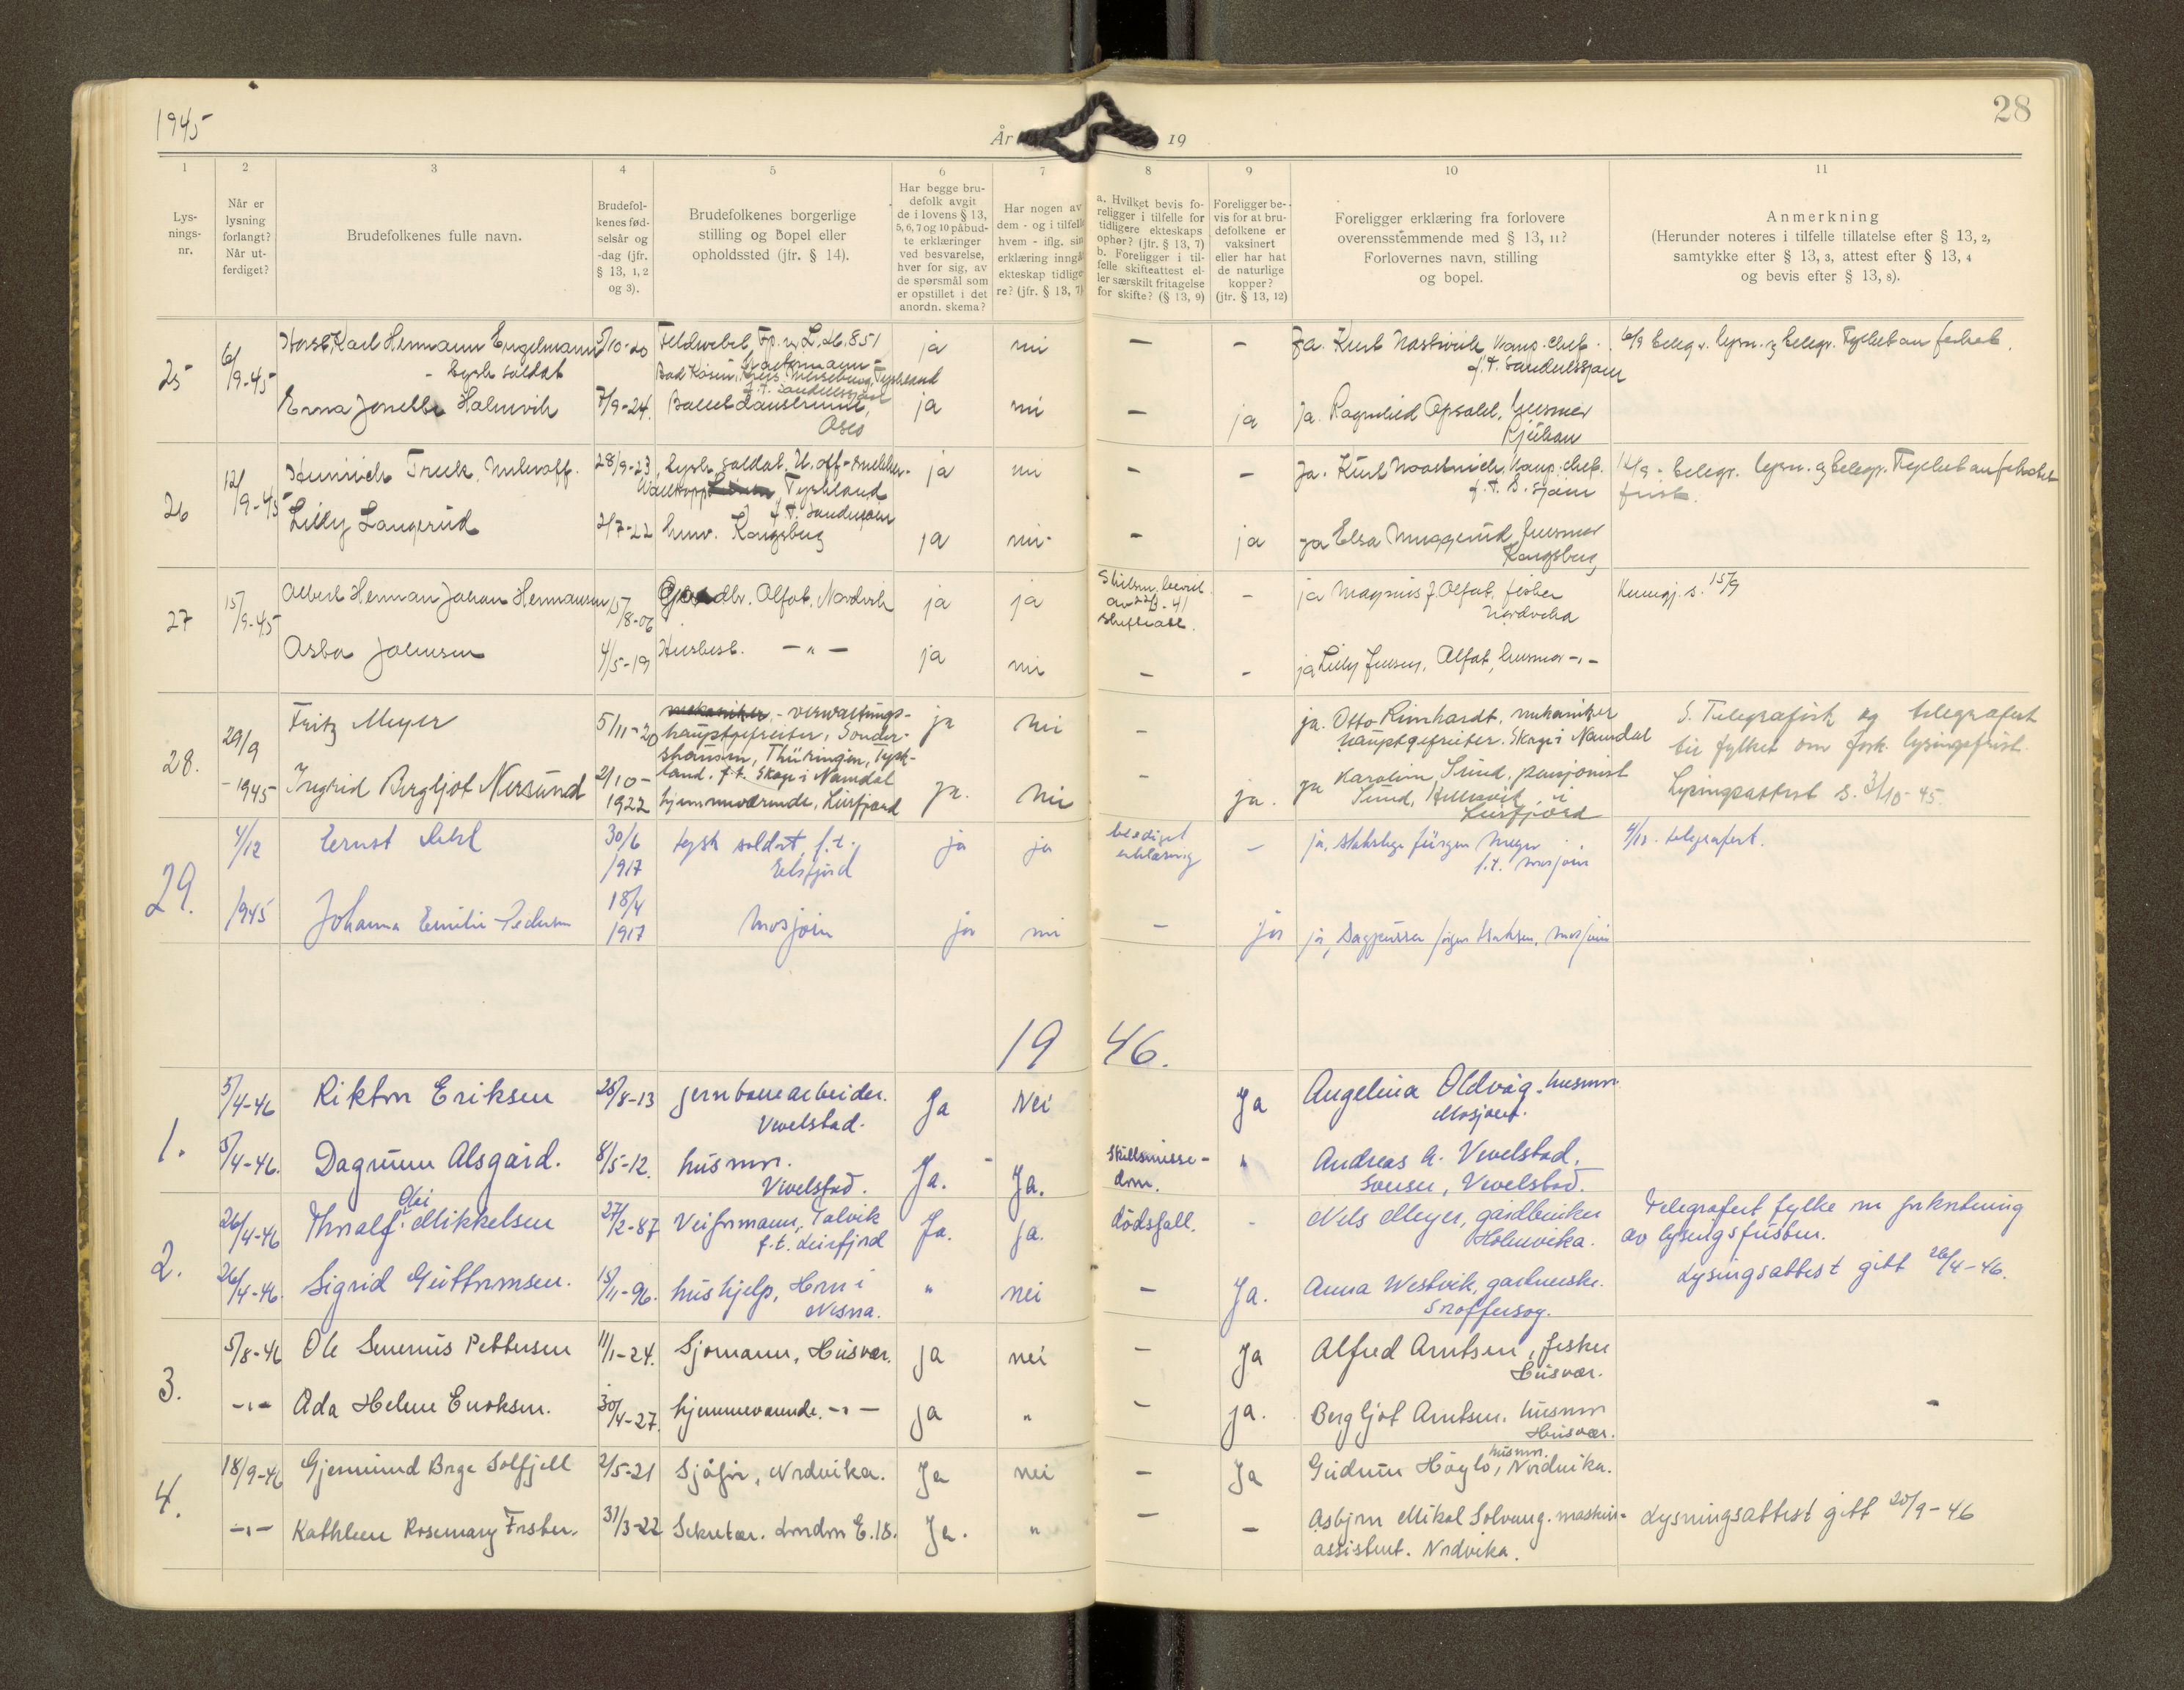 1945
28
År
19
1
Lys-
nings-
nr.
2
Når er
lysning
forlangt?
Når ut-
ferdiget?
3
Brudefolkenes fulle navn.
4
Brudefol-
kenes fød-
selsår og
-dag (jfr.
§ 13, 1, 2
og 3).
5
Brudefolkenes borgerlige
stilling og bopel eller
opholdssted (jfr. § 14).
6
Har begge bru-
defolk avgit
de i lovens § 13,
5, 6, 7 og 10 påbud-
te erklæringer
ved besvarelse,
hver for sig, av
de spørsmål som
er opstillet i det
anordn. skema?
7
Har nogen av
dem - og i tilfelle
hvem - iflg. sin
erklæring inngå
ekteskap tidlige-
re? (jfr. § 13, 7)
8
a. Hvilket bevis fo-
religger i tilfelle for
tidligere ekteskaps
ophør? (jfr. § 13, 7)
b. Foreligger i til-
felle skifteattest el-
ler særskilt fritagelse
for skifte? (§ 13, 9)
9
Foreligger be-
vis for at bru-
defolkene er
vaksinert
eller har hat
de naturlige
kopper?
(jfr. § 13, 12)
10
Foreligger erklæring fra forlovere
overensstemmende med § 13, 11?
Forlovernes navn, stilling
og bopel.
11
Anmerkning
(Herunder noteres i tilfelle tillatelse efter § 13, 2,
samtykke efter § 13, 3, attest efter § 13, 4
og bevis efter § 13, 8).
25
6/9-45
Horst Karl Hermann Engelmann
- tysk soldat
5/10-20
Feldwebel, Fp. nr. L. 26.851
Bad Kösen, Tyskland
ja
nei
-
-
Ja. Kurt
Komp. chef.
f.t. Sandnessjøen
6/9 telegr. lysn. og telegr. Fylket om forkort.
Erna Jenelle Holmvik
7/9-24.
Ballettdanserinne,
Oslo
ja
nei
-
ja
Ja. Ragnhild Opsahl, husmor
Rjukan
26
12/9-45
Heinrich Treck, Unteroff.
28/9-23
tysk soldat. U. off
Tyskland
f.t. Sandnessjøen
ja
nei
-
-
Ja. Kurt
Komp. chef.
f.t. S. sjøen
12/9 - telegr. lysn. og telegr. Fylket om forkortet
frist.
Lilly Langerud
2/7-22
hmv. Kongsberg
ja
nei
-
ja
ja Elsa Muggerud, husmor
Kongsberg
27
15/9-45
Albert Herman Johan Hermansen
15/8-06
Gårdbr. Alfot. Nordvik
ja
ja
Skilsm. bevil.
av 22/8-41
-
ja Magnus J. Alfot, fisker
Nordvika
Kunngj. s. 15/9
Asta Johnsen
4/5-19
Husbest. - " -
ja
nei
-
-
ja Lilly Jensen, Alfot, husmor -"-
28.
29/9
-1945
Fritz Meyer
5/11-20
mekaniker - verwaltungs-
hauptgefreiter, Sonders-
hausen, Thüringen, Tysk-
land. f.t. Skage i Namdal
ja
Nei
-
ja. Otto Reinhardt, mekaniker
Hauptgefreiter. Skage i Namdal
S. Telegrafisk og telegrafert
til fylket om fork. lysingsfrist.
Lysingsattest s. 3/10-45.
Ingrid Bergljot Nersund
2/10-
1922
hjemmeværende, Leirfjord
ja.
Nei
-
ja.
ja Karoline Sund, pensjonist
Sund, Hellesvik i
Leirfjord
29.
4/12
1945
Ernst
30/6
1917
tysk soldat, f.t.
Elsfjord
ja
ja
beediget
erklæring
-
ja, stabslege Jürgen Meyer
f.t. Mosjøen
4/12. telegrafert.
Johanna Emilie Pedersen
18/4
1917
Mosjøen
ja
nei
-
ja
ja,
Isaksen, Mosjøen
1946.
1.
5/4-46
Riktor Eriksen
28/8-13
jernbanearbeider.
Vevelstad.
Ja
Nei
Ja
Angelina Oldvåg. husmor
Mosjøen.
5/4-46.
Dagrunn Alsgård.
8/5-12.
husmor.
Vevelstad.
Ja.
Ja.
Skillsmisse-
dom.
"
Andreas A. Vevelstad,
Svensn, Vevelstad.
2.
26/4-46
Thoralf Olai Mikkelsen
27/2-87
Veiformann, Talvik
f.t. Leirfjord
Ja.
ja.
dödsfall.
-
Nels Meyer, gårdbruker
Holmvika.
Telegrafert fylke om forkortning
av lysingsfristen.
26/4-46.
Sigrid Guttormsen.
15/11-96.
hushjelp, Horn i
Nesna.
"
nei
-
Ja.
Anna Westvik, gartnerske.
Lysingsattest gitt 26/4-46.
3.
5/8-46
Ole Severius Pettersen
11/1-24.
Sjømann, Husvær.
ja
nei
-
Ja
Alfred Arntsen, fisker
Husvær.
-"-
Ada Helene Enoksen.
30/4-27.
hjemmeværende. -"-
ja
"
-
ja.
Bergljot Arntsen, husmor
Husvær.
-
4.
18/9-46
Gjermund Borge Solfjell
2/5-21
Sjåfør, Nordvika.
Ja
nei
-
Ja
Gudrun Høgli, husmor. Nordvika.
-"-
Kathleen Rosemary Forster.
31/3-22
Sekretær. London E.18.
Ja.
"
-
-
Asbjørn Mikal Solvang. maskin-
assistent. Nordvika.
Lysningsattest gitt 20/9-46